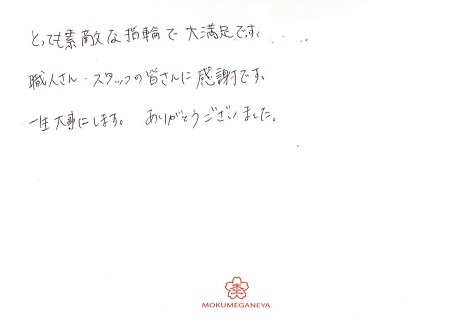 とっても素敵な指輪で大満足です。....
職人さん・スタッフの皆さんに感謝です。
一生大事にします。 ありがとうございました。
MOKUMEGANEYA